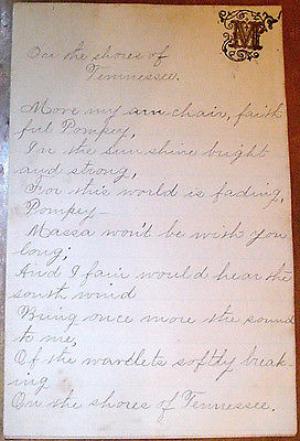 M
On the shores of
Tennessee.
Move my arm chair, faith
ful Pompey,
In the sun shine bright
and strong,
For this world is fading,
Pompey—
Massa won't be with you
long;
And I fain would hear the
south wind
Bring once more the sound
to me,
Of the wavelets softly break-
ing
On the shores of Tennessee.